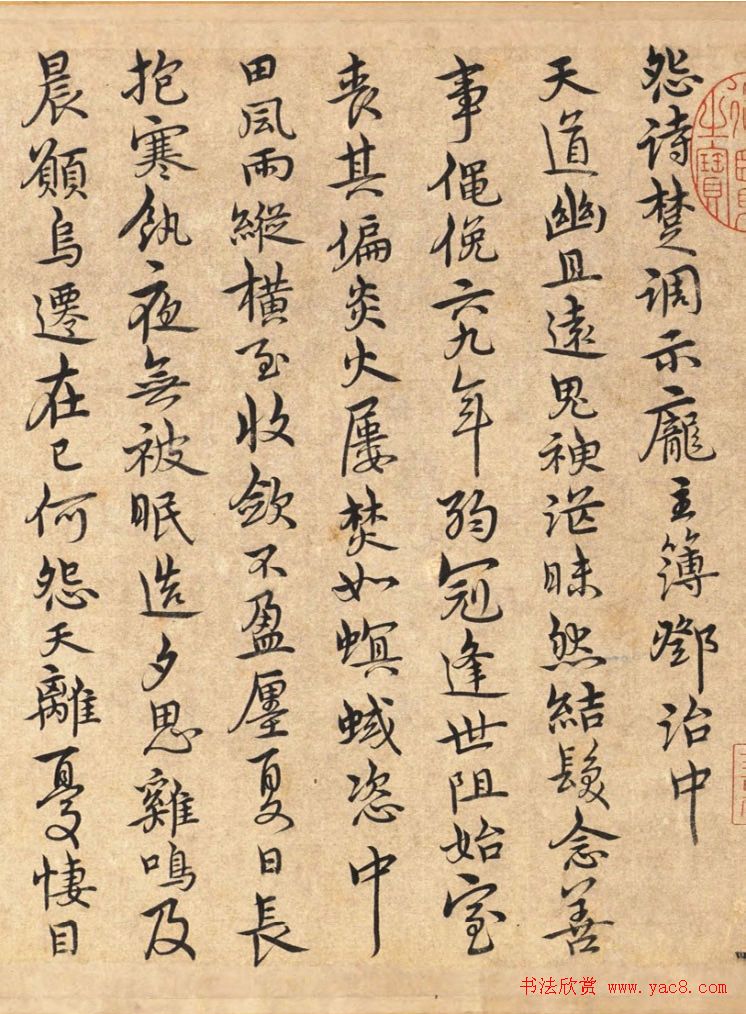 怨诗楚调示龐主簿鄧治中
天道幽且遠鬼神茫昧然結髮念善
事僶俛六九年弱冠逢世阻始室
喪其偏炎火屢焚如螟蜮恣中
田風雨縱橫至收斂不盈廛夏日長
抱寒飢夜無被眠造夕思雞鳴及
晨願烏遷在己何怨天離憂悽目
之寶
书法欣赏 www.yac8.com